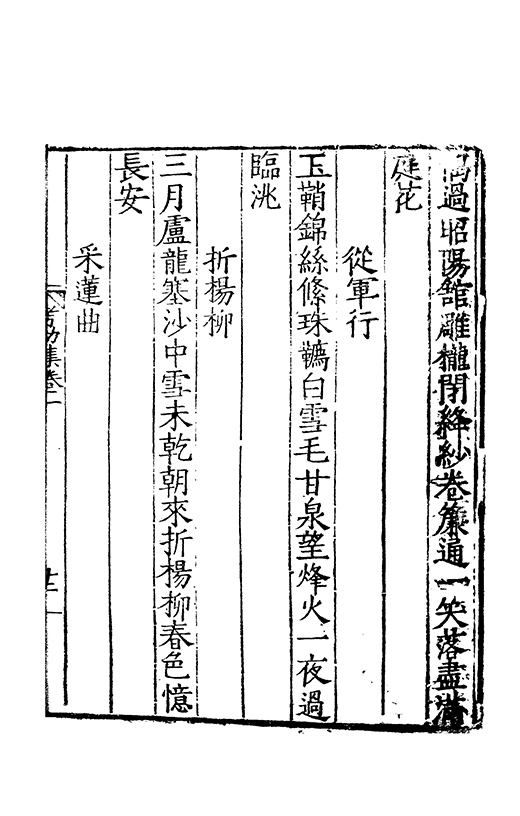 偶過昭陽館雕櫳閉絳紗卷簾通一笑落盡滿
庭花
從軍行
玉鞘錦絲絛珠韉白雪毛甘泉望烽火一夜過
臨洮
折楊柳
三月盧龍塞沙中雪未乾朝來折楊柳春色憶
長安
采蓮曲
考功集卷二